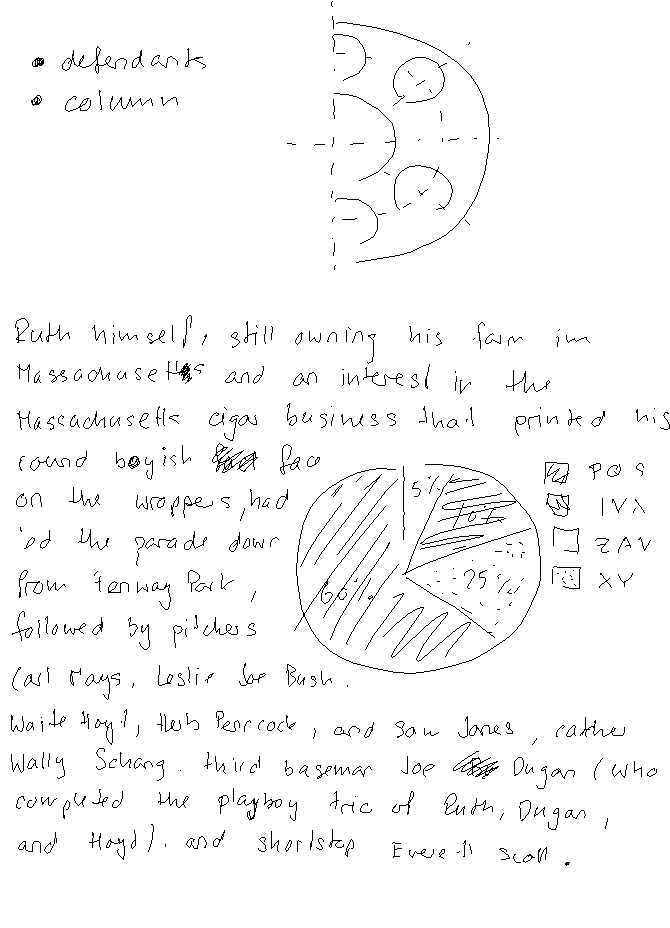 defendants
column
Ruth himself, still owning his farm in
Massachusetts and an interest in the
Massachusetts cigar business that printed his
round boyish face
on the wrappers, had
led the parade down
from Fenway Park,
followed by pitchers
Carl Mays, Leslie Joe Bush.
Waite Hoyt, Herb Penncock, and Sam Jones, catcher
Wally Schang. third baseman Joe Dugan (who
completed the playboy trio of Ruth, Dugan,
and Hoyt). and shortstop Everett Scott.
5%
10%
25%
60%
POS
IVA
ZAV
XY